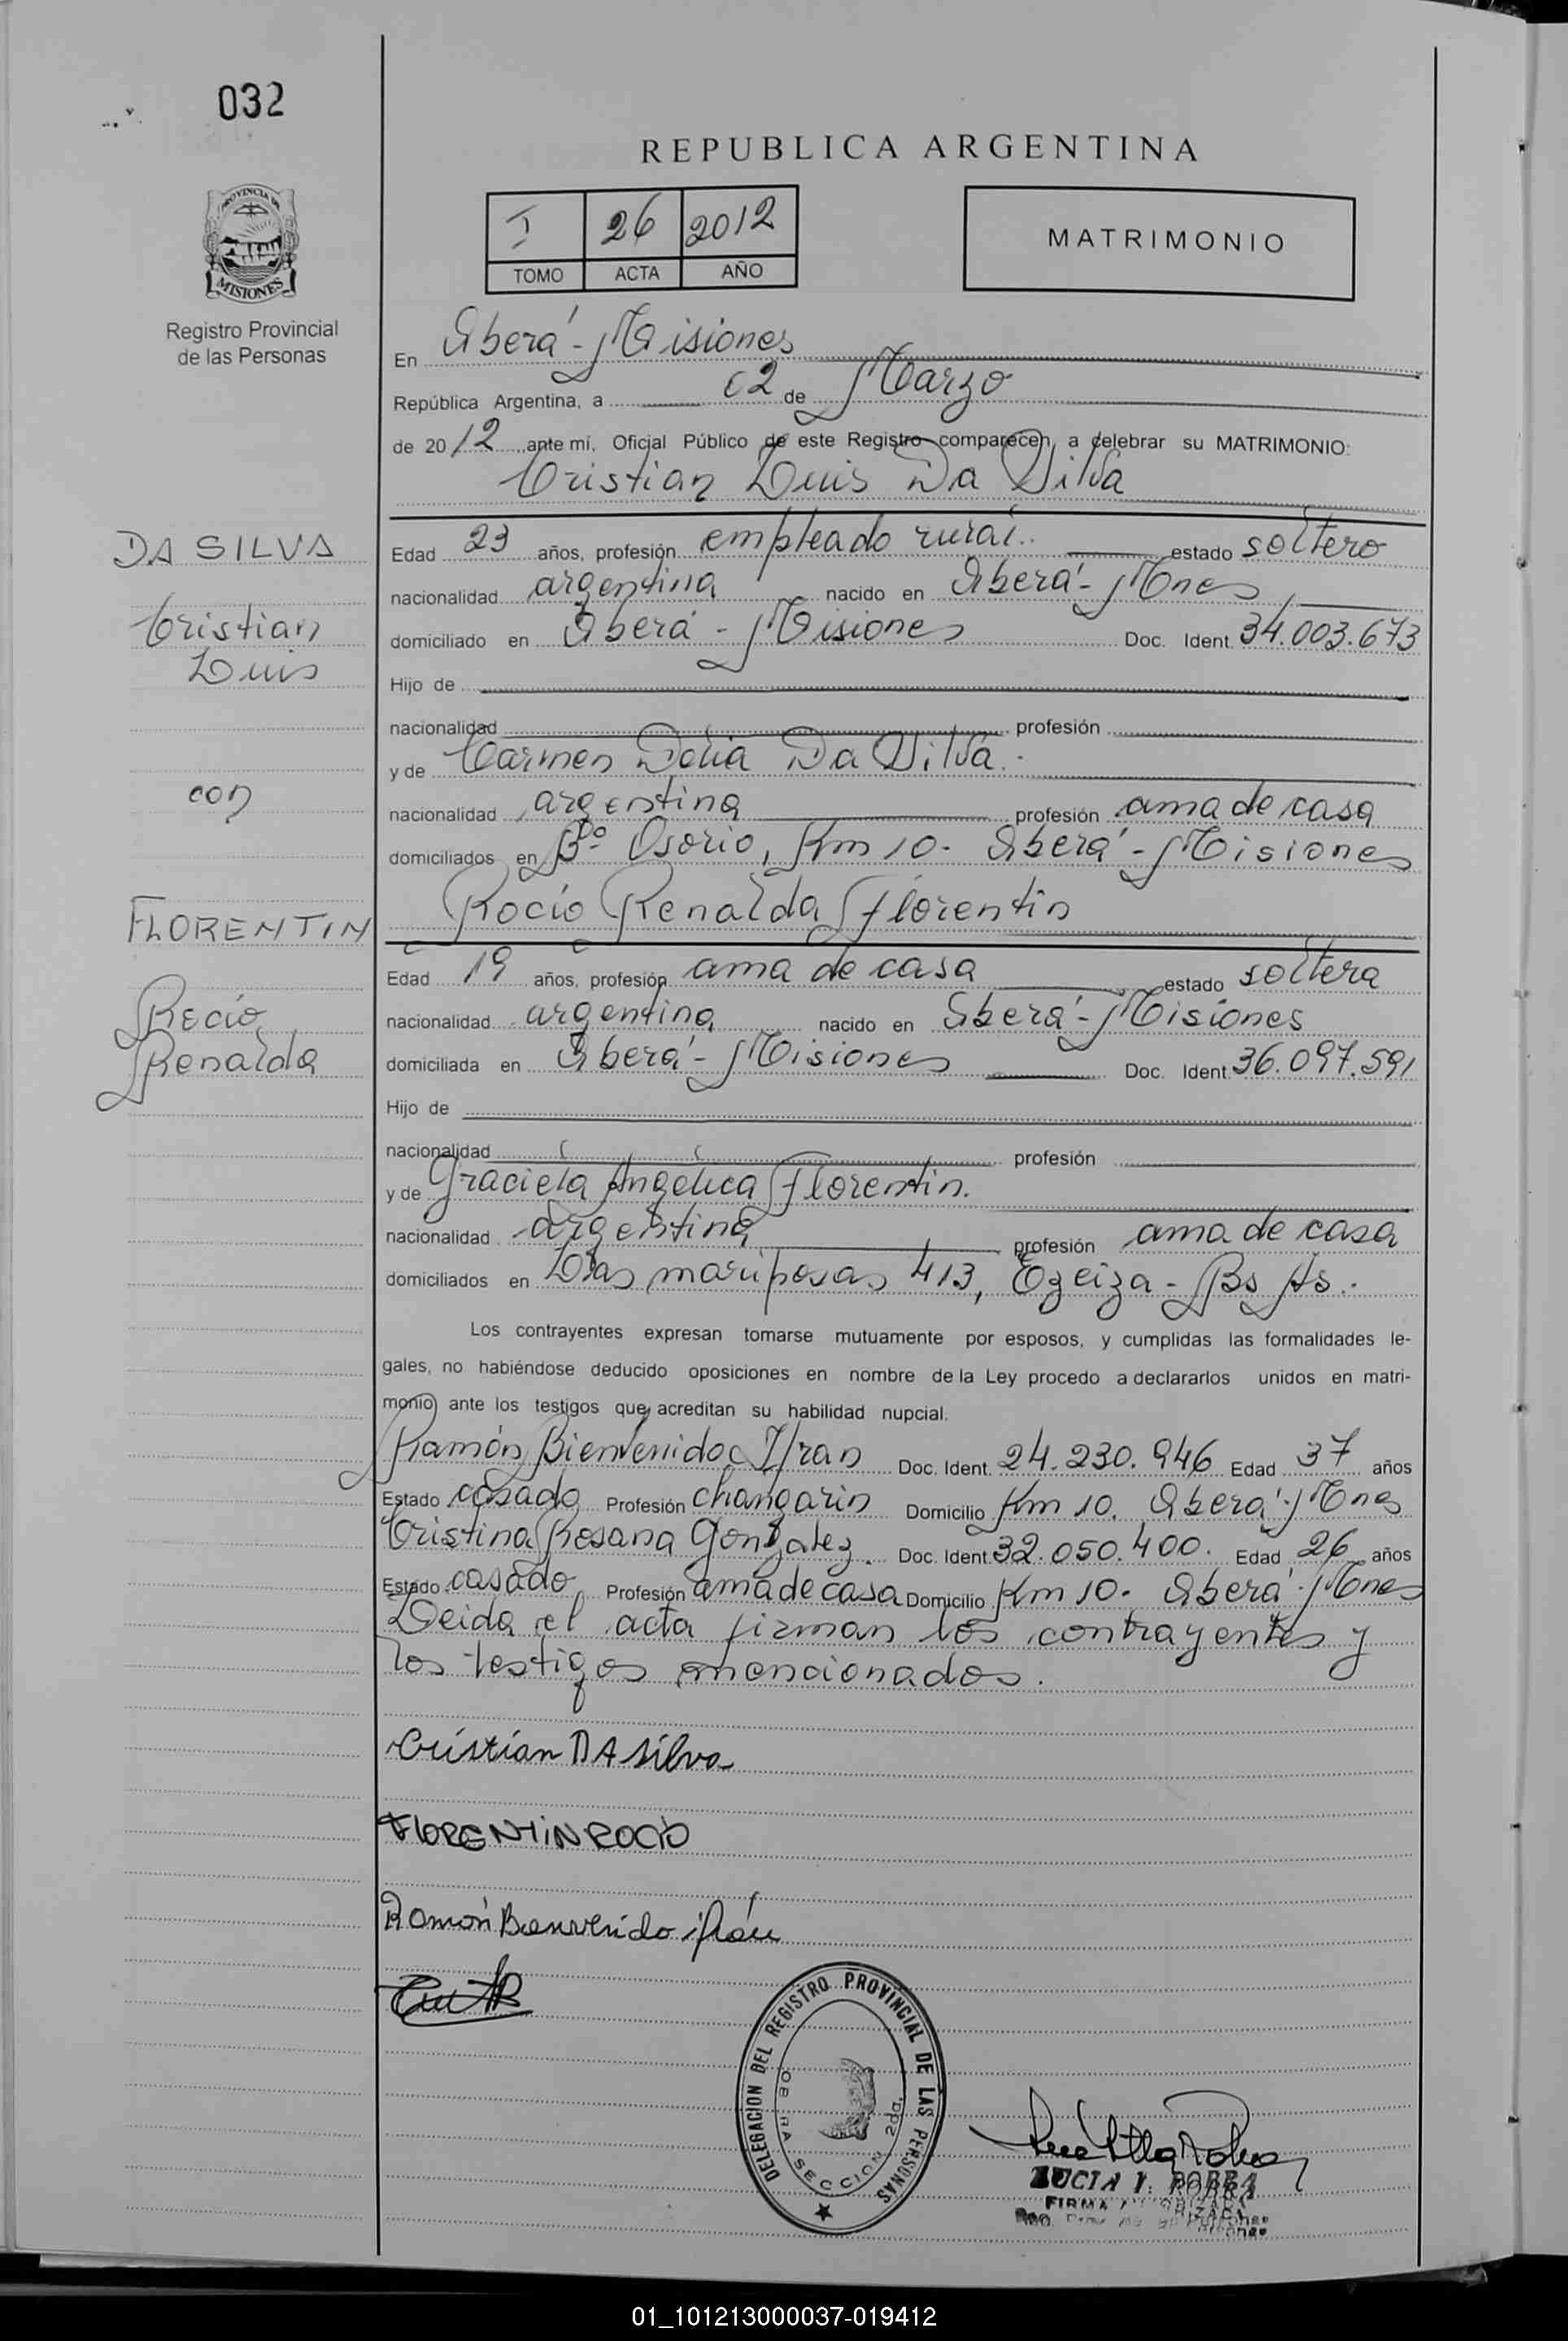 032
REPUBLICA ARGENTINA
PROVINCIA DE
MISIONES
Registro Provincial
de las Personas
I 26 2012
TOMO ACTA AÑO
MATRIMONIO
En Oberá - Misiones
República Argentina, a 02 de Marzo
de 2012 ante mí, Oficial Público de este Registro comparecen a celebrar su MATRIMONIO:
Cristian Luis Da Silva
DA SILVA
Cristian
Luis
con
FLORENTIN
Rocío
Renalda
Edad 23 años, profesión empleado rural.. estado soltero
nacionalidad argentina nacido en Oberá - Mnes
domiciliado en Oberá - Misiones Doc. Ident. 34.003.673
Hijo de
nacionalidad profesión
y de Carmen Delia Da Silva.
nacionalidad argentina profesión ama de casa
domiciliados en Bº Osorio, Km 10. Oberá - Misiones
Rocío Renalda Florentin
Edad 19 años, profesión ama de casa estado soltera
nacionalidad argentina nacido en Oberá - Misiones
domiciliada en Oberá - Misiones Doc. Ident. 36.097.591
Hijo de
nacionalidad profesión
y de Graciela Angélica Florentin.
nacionalidad argentina profesión ama de casa
domiciliados en Las mariposas 413, Ezeiza - Bs As.
Los contrayentes expresan tomarse mutuamente por esposos, y cumplidas las formalidades le-
gales, no habiéndose deducido oposiciones en nombre de la Ley procedo a declararlos unidos en matri-
monio ante los testigos que acreditan su habilidad nupcial.
Ramón Bienvenido Ifran Doc. Ident. 24.230.946 Edad 37 años
Estado casado Profesión changarin Domicilio Km 10. Oberá - Mnes
Cristina Rosana Gonzalez. Doc. Ident. 32.050.400. Edad 26 años
Estado casado Profesión ama de casa Domicilio Km 10. Oberá - Mnes
Leida el acta firman los contrayentes y
los testigos mencionados.
Cristian DA Silva
FLORENTIN ROCIO
Ramón Bienvenido ifrán
DELEGACION DEL REGISTRO PROVINCIAL DE LAS PERSONAS
OBERA SECCION 2da.
LUCIA I. BOBRA
FIRMA AUTORIZADA
01_101213000037-019412